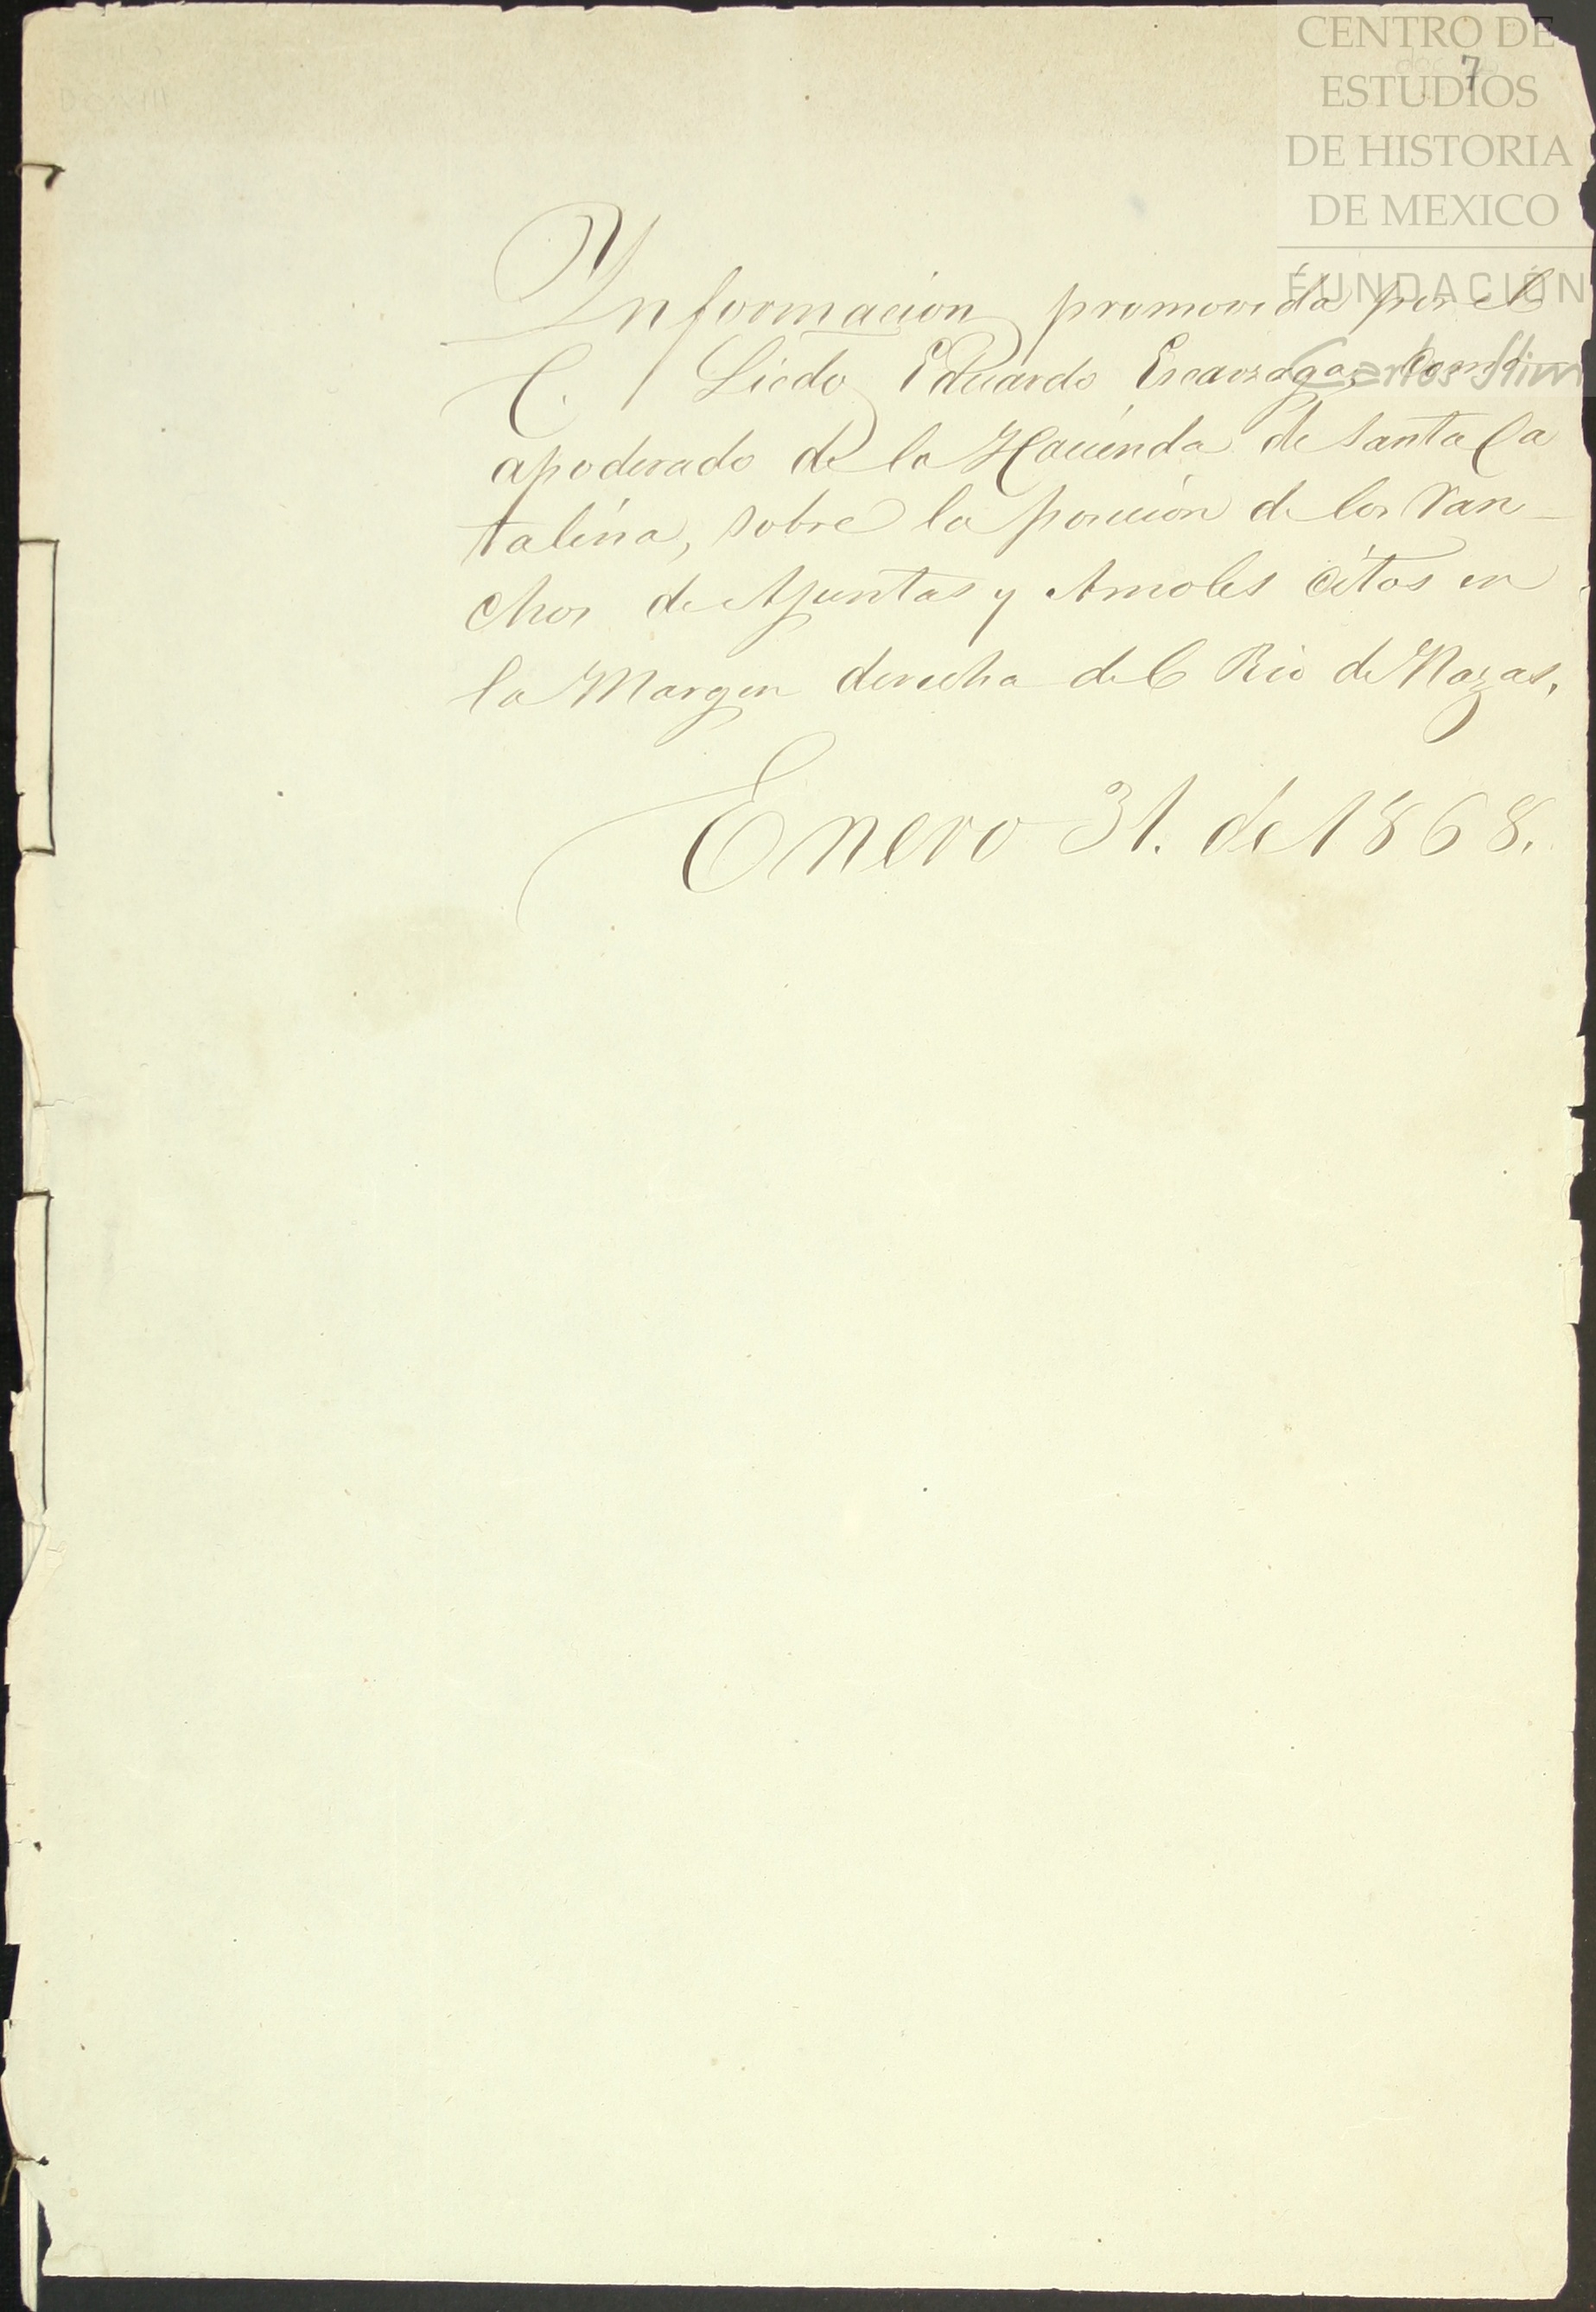 CENTRO DE
ESTUDIOS
DE HISTORIA
DE MEXICO
FUNDACIÓN
Carlos Slim
7
Ynformacion promovida por el
C. Licdo Eduardo Escarzaga, como
apoderado de la Hacienda de Santa Ca
talina, sobre la poscición de los ran-
chos de Ajuntas y Amoles citos en
la Margen derecha del Rio de Nazas,
Enero 31. de 1868.